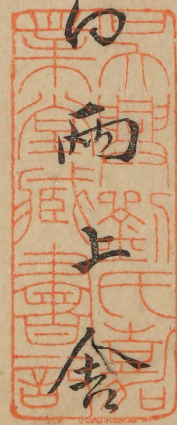 雨上舍
吳興劉氏嘉
業堂藏書記